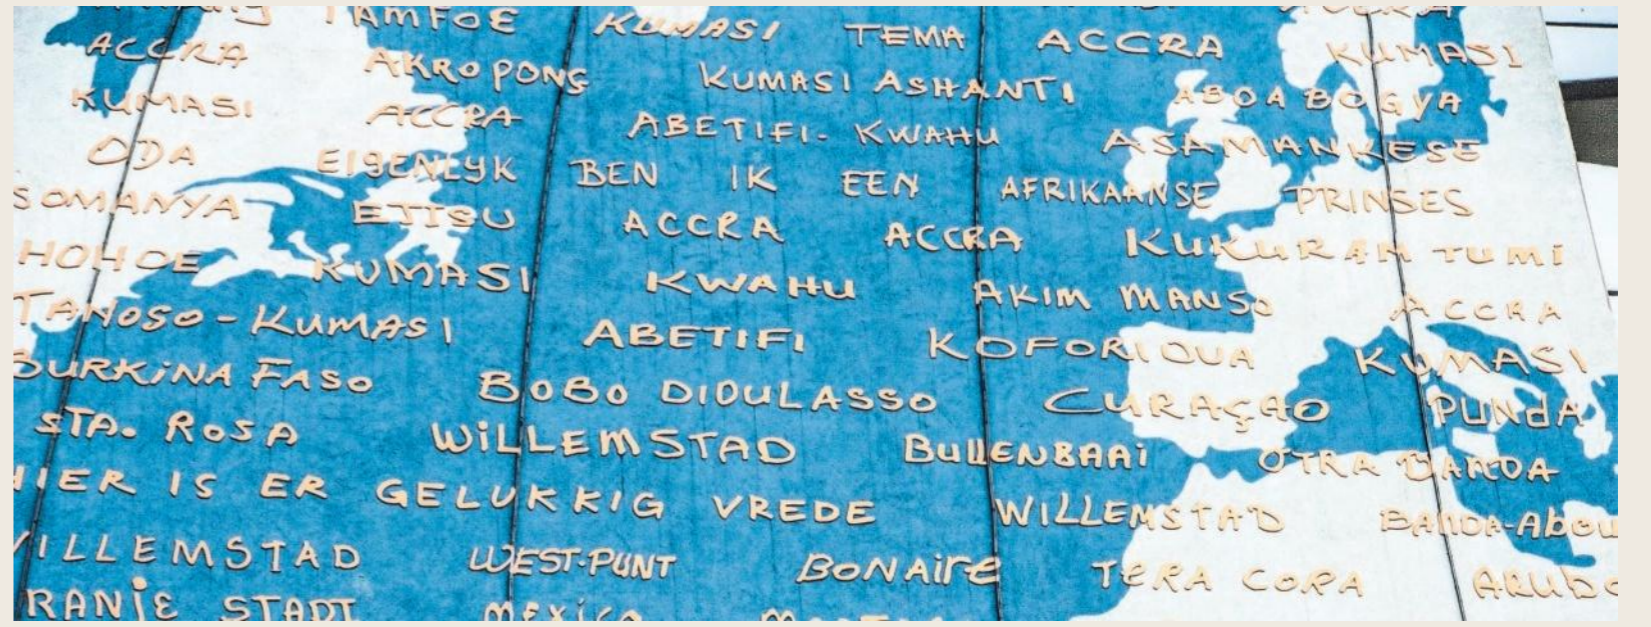 TAMFOE KUMASI TEMA ACCRA KUMASI
ACCRA AKROPONG KUMASI ASHANTI ABOABOGYA
KUMASI ACCRA ABETIFI-KWAHU ASAMANKESE
ODA EIGENLYK BEN IK EEN AFRIKAANSE PRINSES
SOMANYA EJISU ACCRA ACCRA KUKURANTUMI
HOHOE KUMASI KWAHU AKIM MANSO ACCRA
TANOSO-KUMASI ABETIFI KOFORIDUA KUMASI
BURKiNA FASO BOBO DIDULASSO CURAÇAO PUNdA
STA. ROSA WiLLEMSTAD BULLENBAAi OTRA BANDA
HIER IS ER GELUKKIG VREDE WILLEMSTAD BANDA-Abou
WILLEMSTAD WEST-PUNT BONAiRE TERA CORA
RANJE STADT MEXiCO